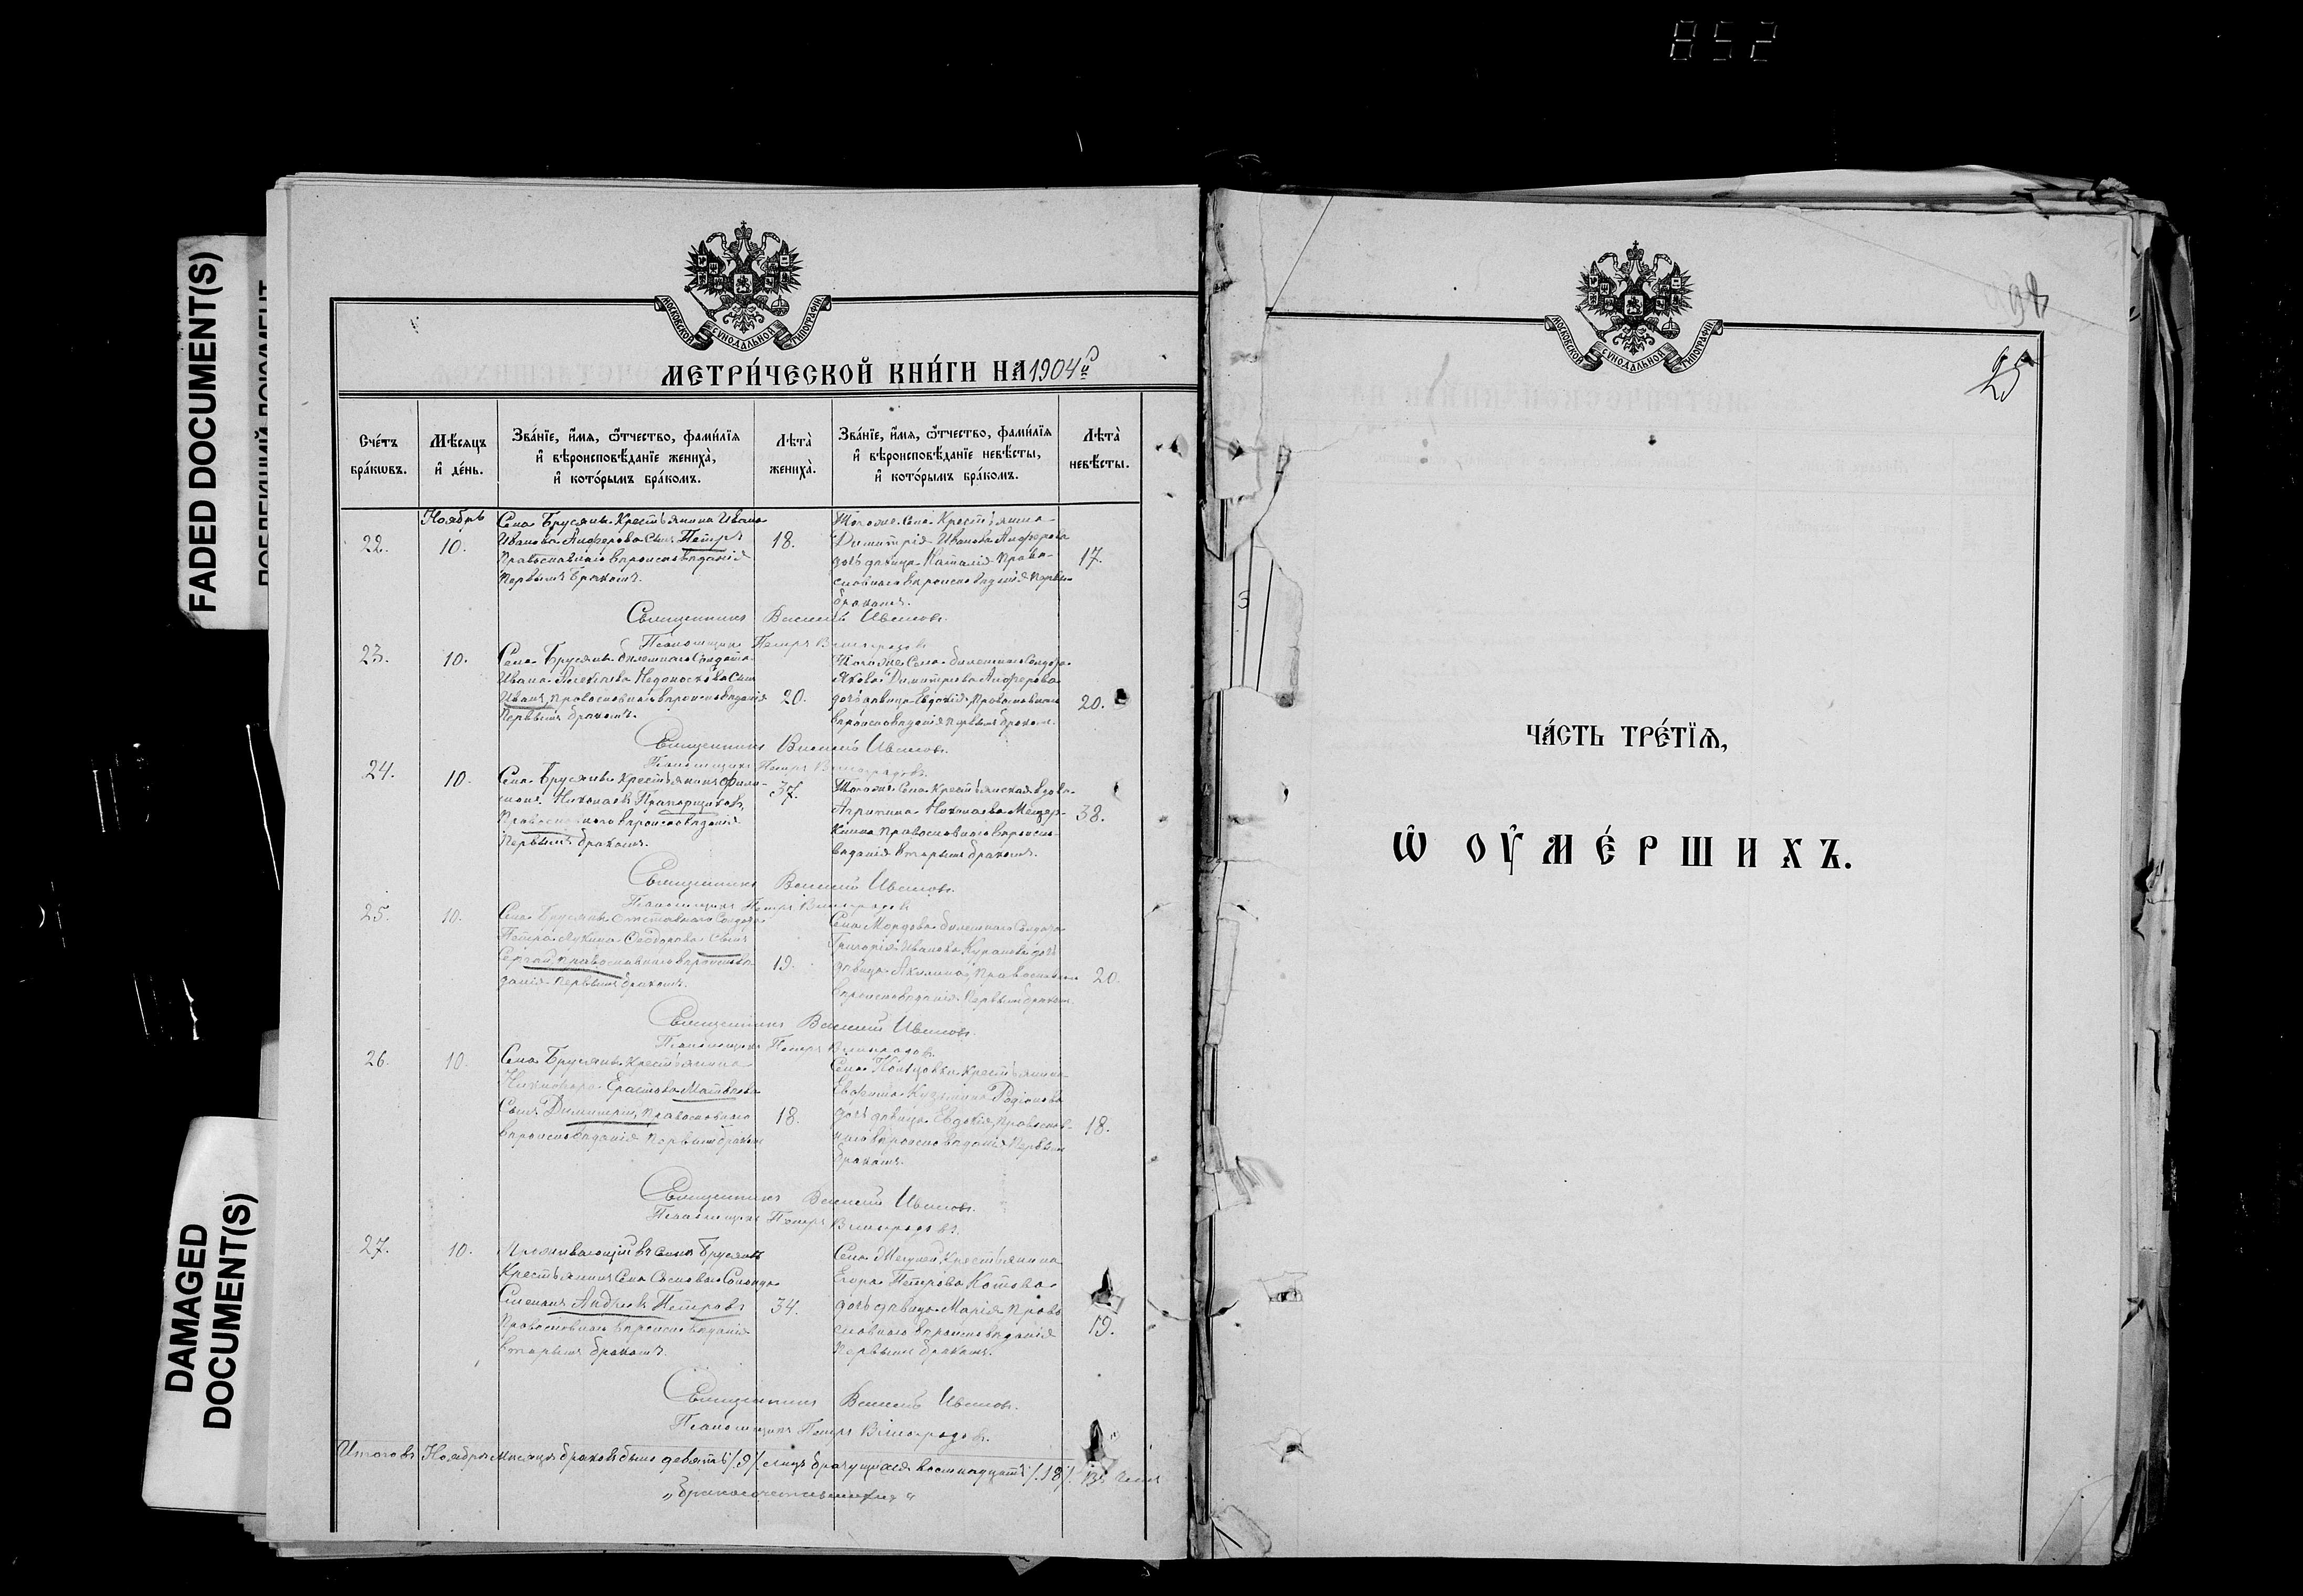 852
FADED DOCUMENT(S)
DAMAGED
DOCUMENT(S)
МОСКОВСКОЙ СѴНОДАЛЬНОЙ ТИПОГРАФІИ
МЕТРИ́ЧЕСКОЙ КНИ́ГИ НА 1904 й
Сче́тъ бра́кωвъ.
Мѣ́сяцъ и҆ де́нь.
Зва́нїе, и҆́мя, ѻ҆́тчество, фами́лїя и҆ вѣроисповѣ́данїе жениха̀, и҆ кото́рымъ бра́комъ.
Лѣта̀ жениха̀.
Зва́нїе, и҆́мя, ѻ҆́тчество, фами́лїя и҆ вѣроисповѣ́данїе невѣ́сты, и҆ кото́рымъ бра́комъ.
Лѣта̀ невѣ́сты.
Ноябрь
22.
10.
Села Брусянъ Крестьянина Ивана
Иванова Анферова Сынъ Петръ
Православнаго вѣроисповѣданія
Первымъ бракомъ.
18.
Тогоже Села Крестьянина
Димитрія Иванова Анферова
дочь дѣвица Наталія Право-
славнаго вѣроисповѣданія Первым
бракомъ.
17.
Священникъ Василій Ивановъ.
Псаломщикъ Петръ Виноградовъ
23.
10.
Села Брусянъ билетнаго Солдата
Ивана Алексѣева Недоноскова Сынъ
Иванъ, Православнаго вѣроисповѣданія
Первымъ бракомъ.
20.
Тогоже Села билетнаго Солдата
Якова Димитрова Анферова
дочь дѣвица Евдокія, Православнаго
вѣроисповѣданія первымъ бракомъ.
20.
Священникъ Василій Ивановъ.
Псаломщикъ Петръ Виноградовъ.
24.
10.
Села Брусянъ Крестьянинъ Фили-
монъ Николаевъ Прапорщиковъ,
Православнаго вѣроисповѣданія
Первымъ бракомъ.
37.
Тогоже Села Крестьянская вдова
Агрипина Николаева Мещер-
кина Православнаго вѣроиспо-
вѣданія вторымъ бракомъ.
38.
Священникъ Василій Ивановъ.
Псаломщикъ Петръ Виноградовъ
25.
10.
Села Брусянъ отставнаго Солдата
Петра Лукина Ѳеодорова Сынъ
Сергѣй, православнаго вѣроисповѣ-
данія первымъ бракомъ.
19.
Села Мордова билетнаго Солдата
Григорія Иванова Куранова дочь
дѣвица Акилина, Православнаго
вѣроисповѣданія Первымъ бракомъ.
20.
Священникъ Василій Ивановъ.
Псаломщикъ Петръ Виноградовъ.
26.
10.
Села Брусянъ Крестьянина
Никифора Ерастова Матвѣева
Сынъ Димитрій, Православнаго
вѣроисповѣданія Первымъ бракомъ
18.
Села Крестьянина
Евфима Кузьмина Родіонова
дочь дѣвица Евдокія, Православ-
наго вѣроисповѣданія Первымъ
бракомъ.
18.
Священникъ Василій Ивановъ.
Псаломщикъ Петръ Виноградовъ.
27.
10.
Проживающій въ селѣ Брусянахъ
Крестьянинъ Села Сосновый Солонецъ
Андрей Петровъ
Православнаго вѣроисповѣданія
вторымъ бракомъ.
34.
Села Крестьянина
Егора Петрова Котова
дочь дѣвица Марія Право
славнаго вѣроисповѣданія
Первымъ бракомъ.
19.
Священникъ Василій Ивановъ.
Псаломщикъ Петръ Виноградовъ.
Итого въ Ноябрѣ Мѣсяцѣ браковъ было девять /9/ лицъ брачущихся восемнадцать /18/.
МОСКОВСКОЙ СѴНОДАЛЬНОЙ ТИПОГРАФІИ
25
ЧА́СТЬ ТРЕ́ТЇѦ,
Ѡ҆ ОУ҆МЕ́РШИХЪ.